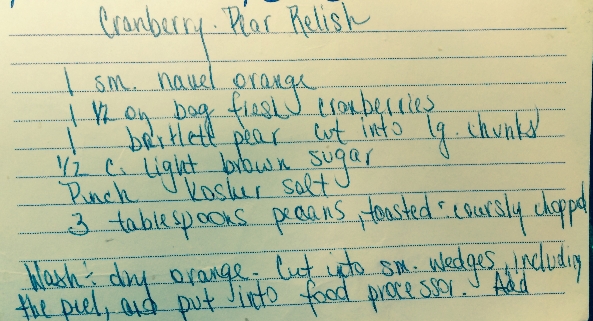 Cranberry-Pear Relish
1 sm. navel orange
1 1/2 on bag fresh cranberries
1 bartlett pear cut into lg. chunks
1/2 c. light brown sugar
Pinch Kosher salt
3 tablespoons pecans, toasted & coursly choppd
Wash & dry orange. Cut into sm. wedges, including
the peel, and put into food processor. Add